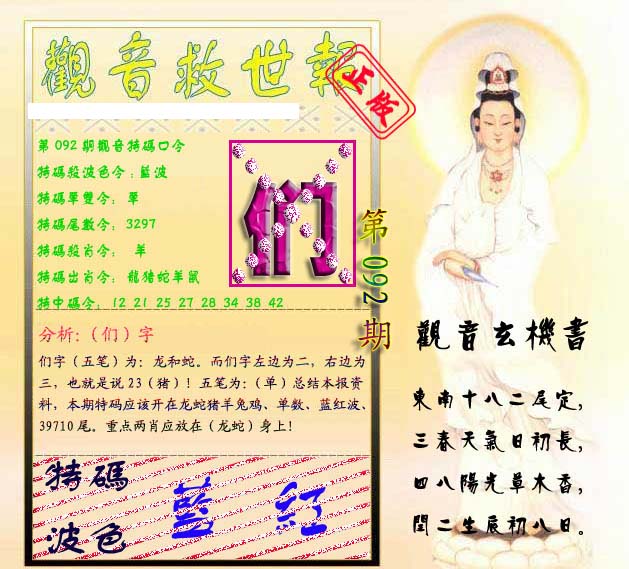 觀音救世報
正版
第092期觀音特碼口令
特碼殺波色令:藍波
特碼單雙令: 單
特碼尾數令: 3297
特碼殺肖令: 羊
特碼出肖令: 龍猪蛇羊鼠
特中碼令: 12 21 25 27 28 34 38 42
们
第092期
分析:（们）字
们字（五笔）为：龙和蛇。而们字左边为二，右边为
三，也就是说23（猪）！五笔为：（单）总结本报资
料，本期特码应该开在龙蛇猪羊兔鸡、单数、蓝红波、
39710尾。重点两肖应放在（龙蛇）身上！
特碼
波色
藍 紅
觀音玄機書
東南十八二尾定，
三春天氣日初長，
四八陽光草木香，
閏二生辰初八日。